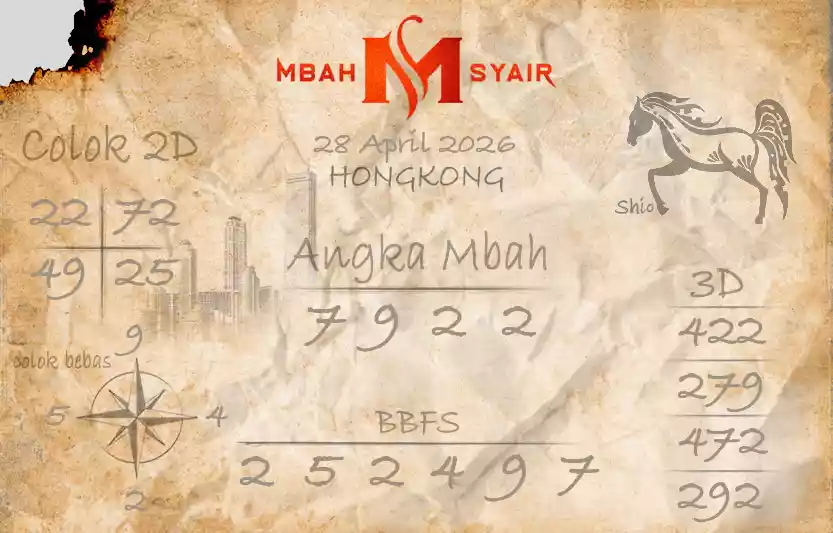 MBAH M SYAIR
28 April 2026
HONGKONG
Colok 2D
22 72
49 25
Shio
Angka Mbah
7 9 2 2
9
colok bebas
5 4
2
3D
422
279
472
292
BBFS
2 5 2 4 9 7